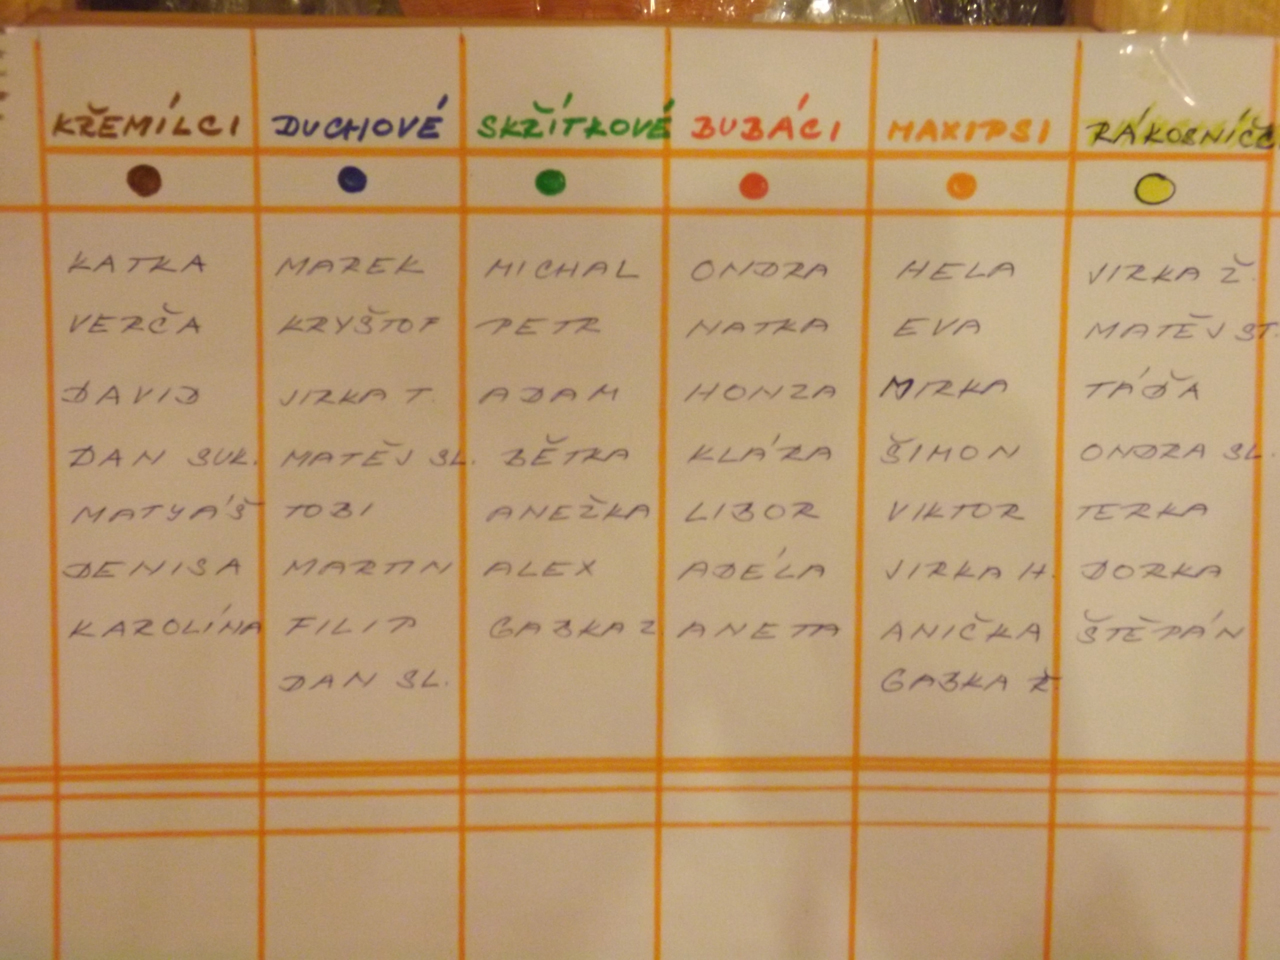 KŘEMÍLCI DUCHOVÉ SKŘÍTKOVÉ BUBÁCI MAXIPSI RÁKOSNÍČC
KATKA MAREK MICHAL ONDRA HELA JIRKA Ž.
VERČA KRYŠTOF PETR NATKA EVA MATĚJ ST.
DAVID JIRKA T. ADAM HONZA MIRKA TÁĎA
DAN SUK. MATĚJ SL. BĚTKA KLÁRA ŠIMON ONDRA SL.
MATYÁŠ TOBI ANEŽKA LIBOR VIKTOR TERKA
DENISA MARTIN ALEX ADÉLA JIRKA H. DORKA
KAROLÍNA FILIP GABKA Z. ANETA ANIČKA ŠTĚPÁN
DAN SL. GABKA Ž.